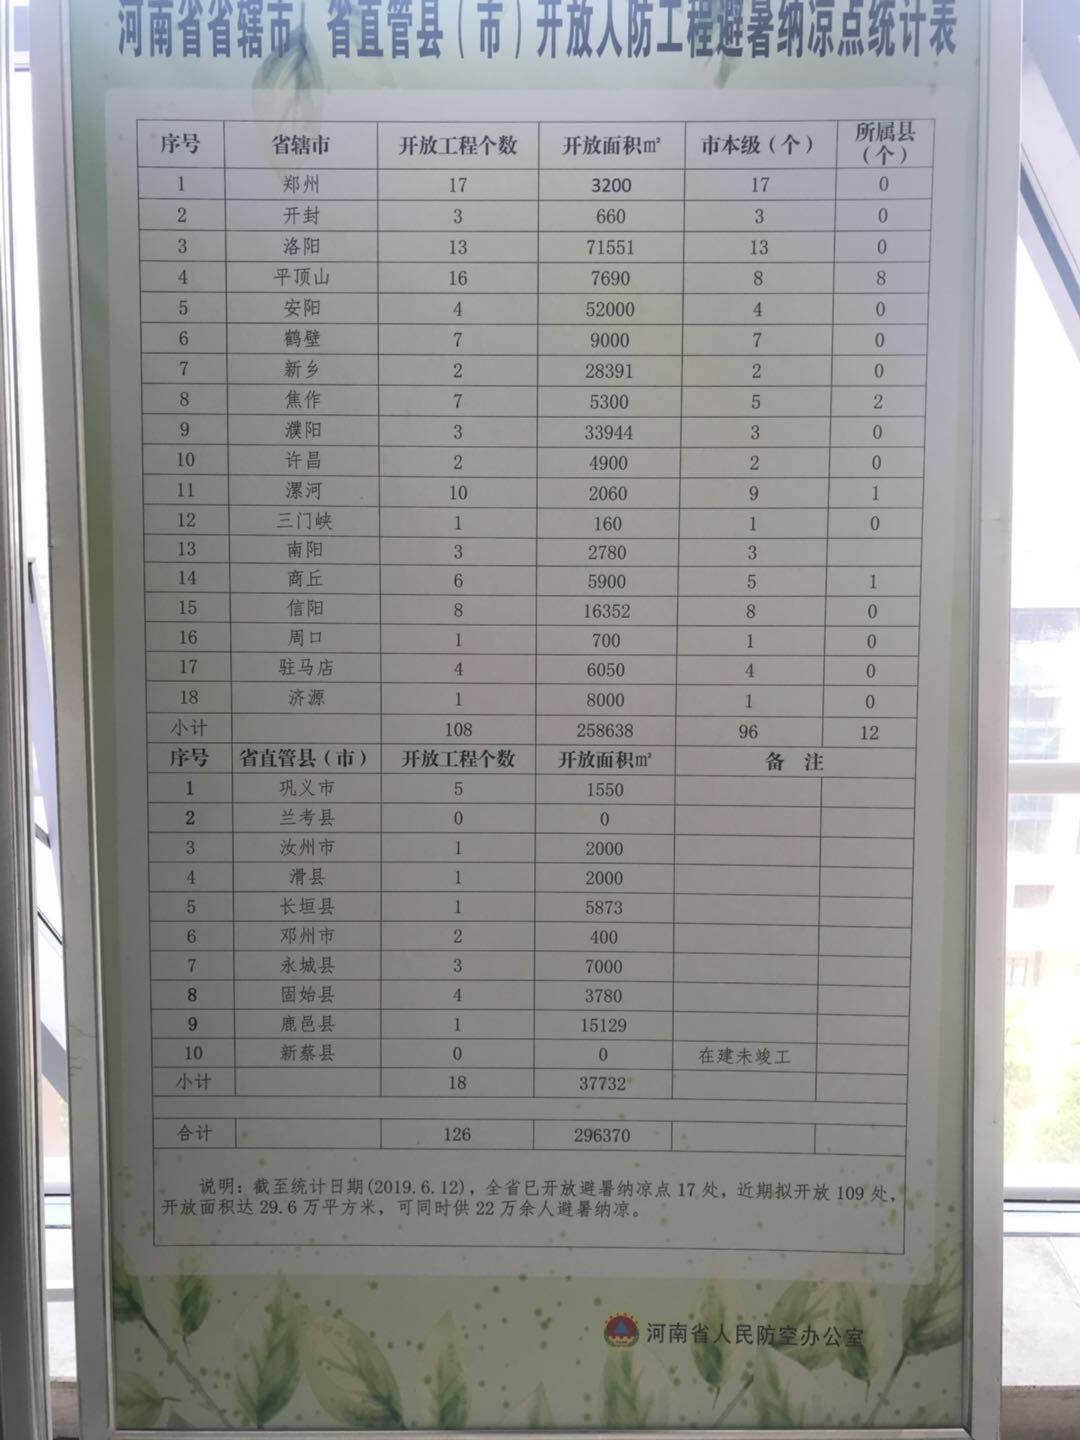 河南省省辖市、省直管县（市）开放人防工程避暑纳凉点统计表
序号 省辖市 开放工程个数 开放面积㎡ 市本级（个） 所属县（个）
1 郑州 17 3200 17 0
2 开封 3 660 3 0
3 洛阳 13 71551 13 0
4 平顶山 16 7690 8 8
5 安阳 4 52000 4 0
6 鹤壁 7 9000 7 0
7 新乡 2 28391 2 0
8 焦作 7 5300 5 2
9 濮阳 3 33944 3 0
10 许昌 2 4900 2 0
11 漯河 10 2060 9 1
12 三门峡 1 160 1 0
13 南阳 3 2780 3
14 商丘 6 5900 5 1
15 信阳 8 16352 8 0
16 周口 1 700 1 0
17 驻马店 4 6050 4 0
18 济源 1 8000 1 0
小计 108 258638 96 12
序号 省直管县（市） 开放工程个数 开放面积㎡ 备 注
1 巩义市 5 1550
2 兰考县 0 0
3 汝州市 1 2000
4 滑县 1 2000
5 长垣县 1 5873
6 邓州市 2 400
7 永城县 3 7000
8 固始县 4 3780
9 鹿邑县 1 15129
10 新蔡县 0 0 在建未竣工
小计 18 37732
合计 126 296370
说明：截至统计日期(2019.6.12)，全省已开放避暑纳凉点 17 处，近期拟开放 109 处，
开放面积达 29.6 万平方米，可同时供 22 万余人避暑纳凉。
河南省人民防空办公室